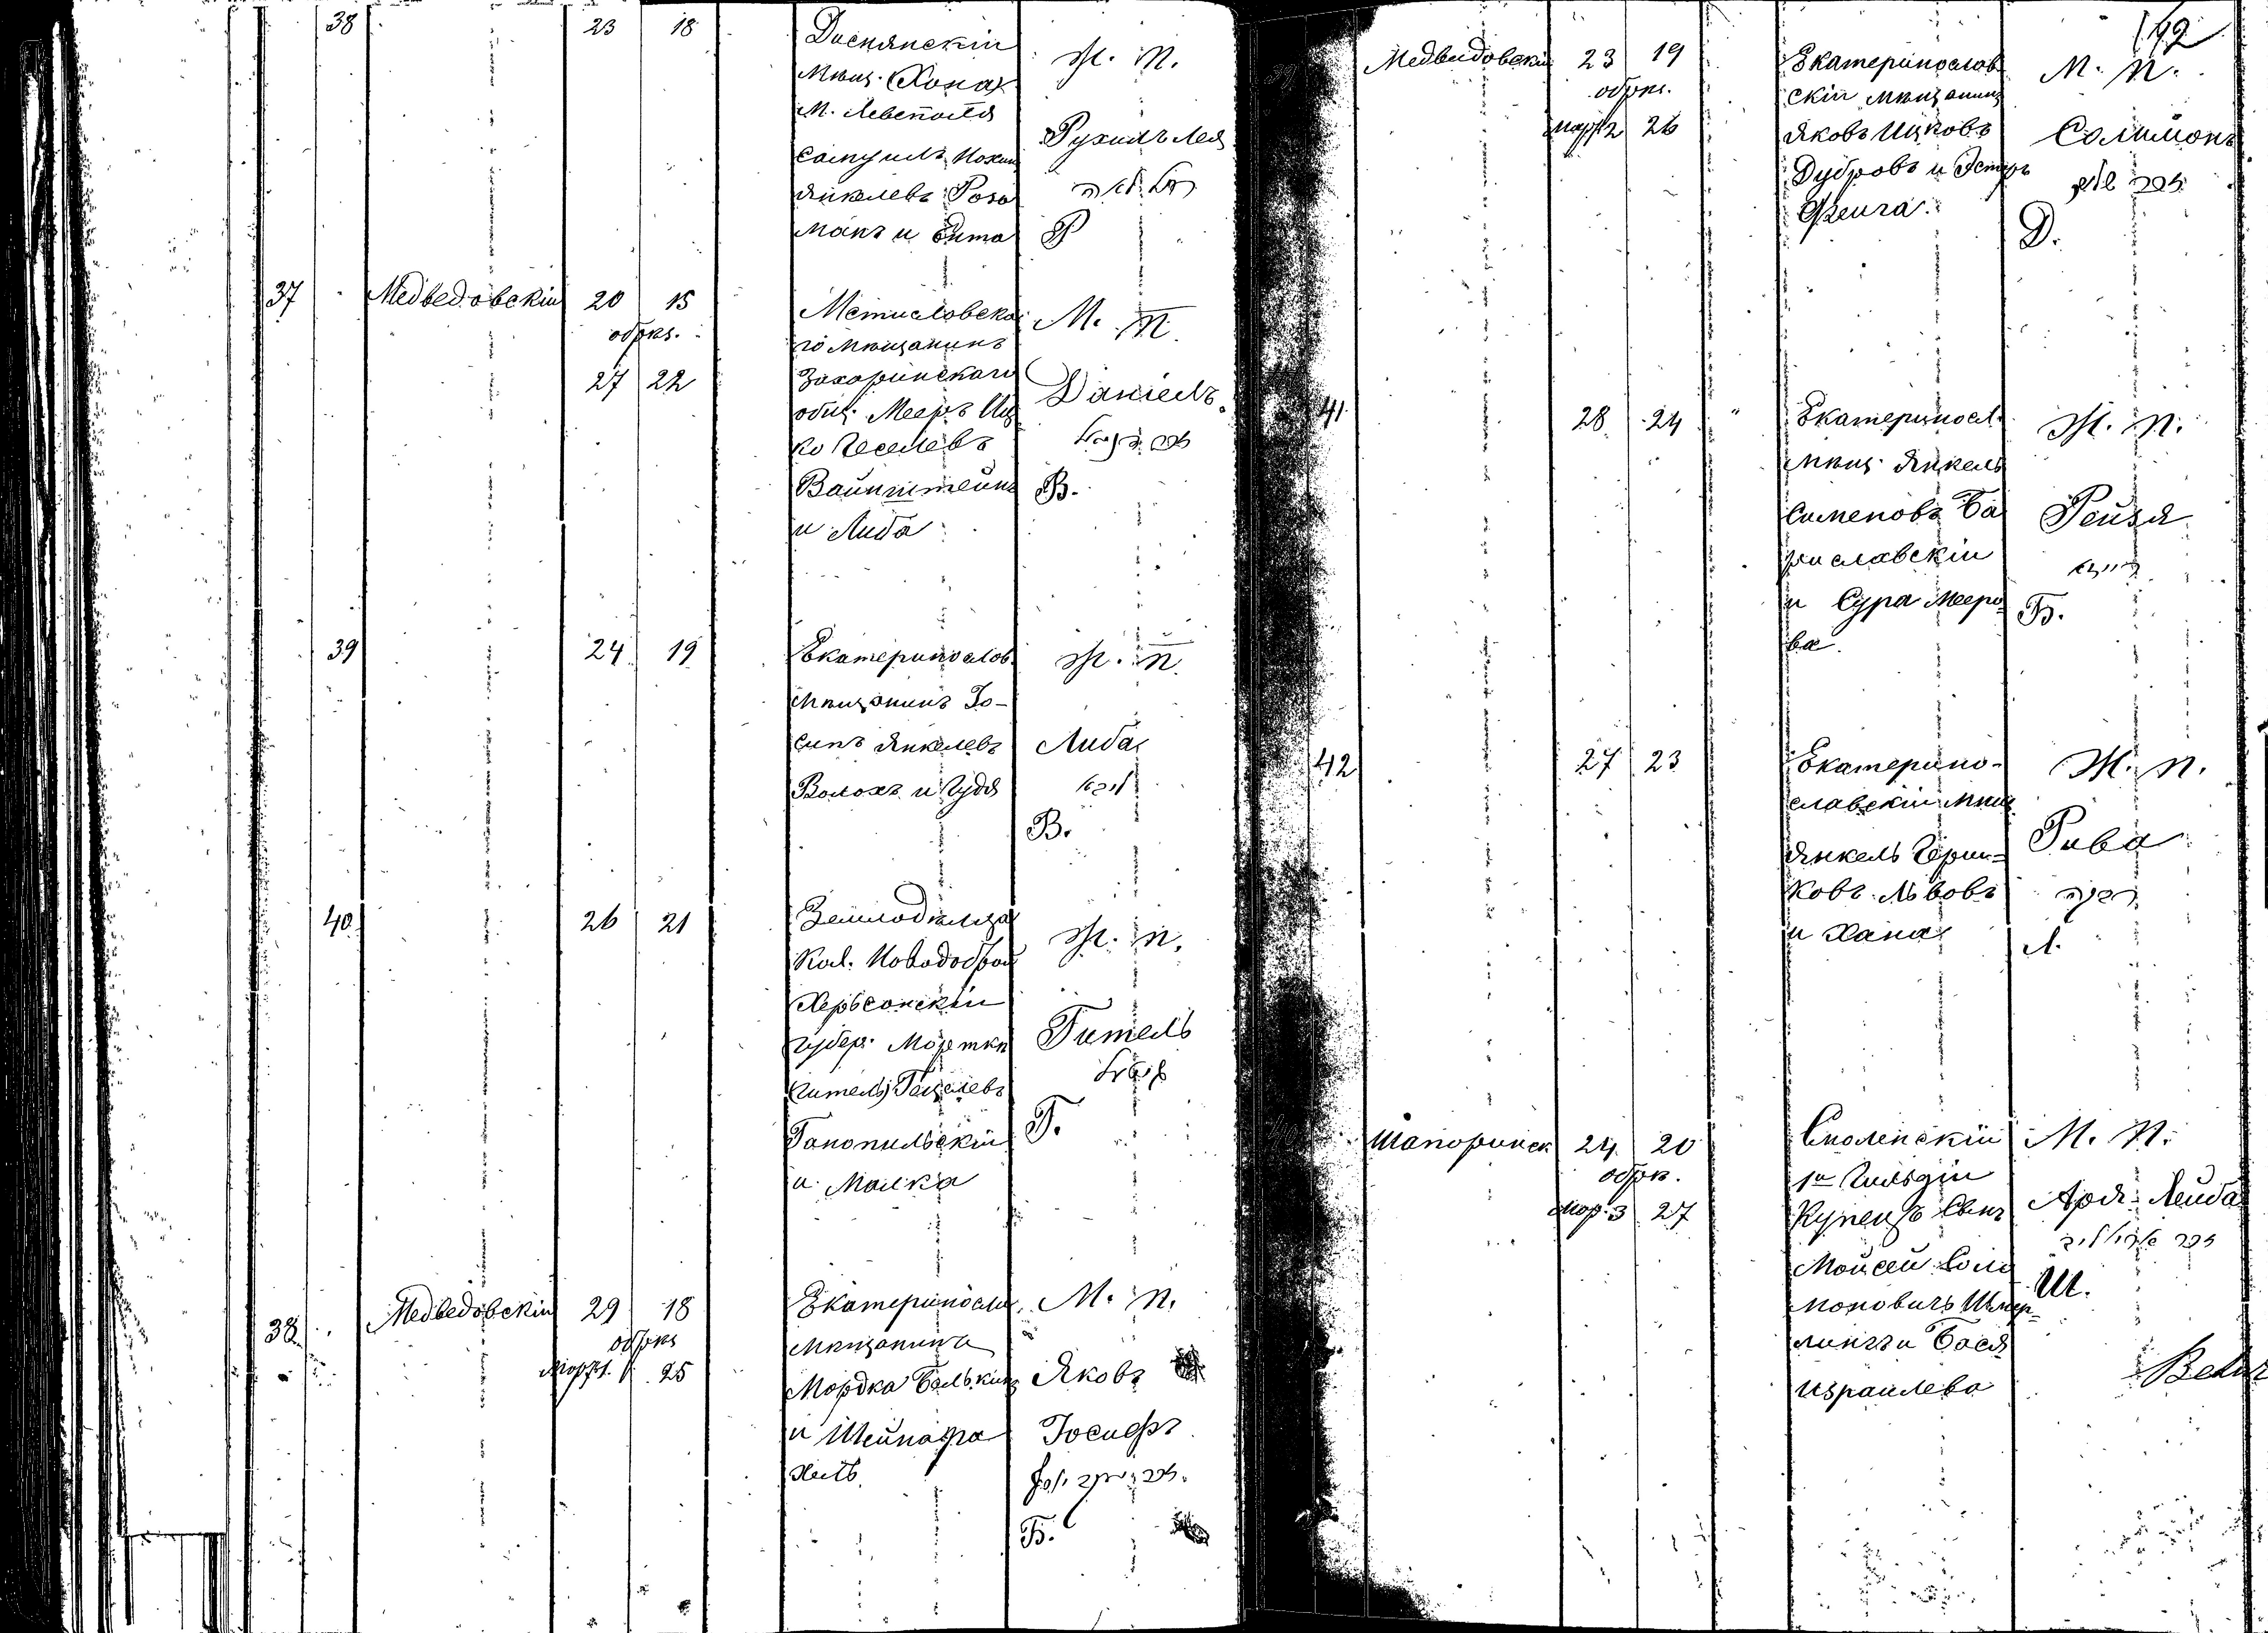 38 23 18
Диснянскій
Мѣщ. (Хона)
М. Левеполя
Самуилъ Нохим
Янкелевъ Роза
манъ и Бита
Ж. п.
Рухиль Лея
רחל לאה
Р
37 Медведовскій 20 15
обрѣз.
27 22
Мстиславска
го мѣщанинъ
Захаринскаго
общ. Мееръ Иц
ко Геселевъ
Вайнштейнъ
и Либа
М. п.
Даніель
דניאל
В.
39 24 19
Екатеринослов.
Мѣщанинъ Іо-
сипъ Янкелевъ
Волохъ и Гудя
Ж. п.
Либа
ליבא
В.
40 26 21
Земледѣльца
Кол. Новодоброй
Херсонскій
губер. Мортка
(Гитель) Гецелевъ
Ганопильскій
и Малка
Ж. п.
Гитель
גיטל
Г.
38 Медведовскій 29 18
обрѣз
Март. 1. 25
Екатериносла.
Мѣщанинъ
Мордка Белькинъ
и Шейнафра
хель
М. п.
Яковъ
Іосифъ
יעקב יוסף
Б.
142
39 Медвидовскій 23 19
обрѣз.
март 2 26
Екатеринослов
скій мѣщанинъ
Яковъ Ицковъ
Дубровъ и Эстеръ
Фейга.
М. п.
Солимонъ
Д.
41 28 24
Екатериносл.
мѣщ. Янкель
Сименовъ Ба
риславскій
и Сура Мееро
ва.
Ж. п.
Рейзя
רייזא
Б.
42 27 23
Екатерино-
славскій мѣщ
Янкель Герш-
ковъ Львовъ
и Хана
Ж. п.
Рива
רבקה
Л.
40 Шапоринск 24 20
обрѣз.
мар. 3 27
Смоленскій
1й Гильдіи
Купецъ Сынъ
Мойсей Соло
моновичъ Шмер-
лингъ и Бася
Израилева
М. п.
Аря-Лейба
Ш.